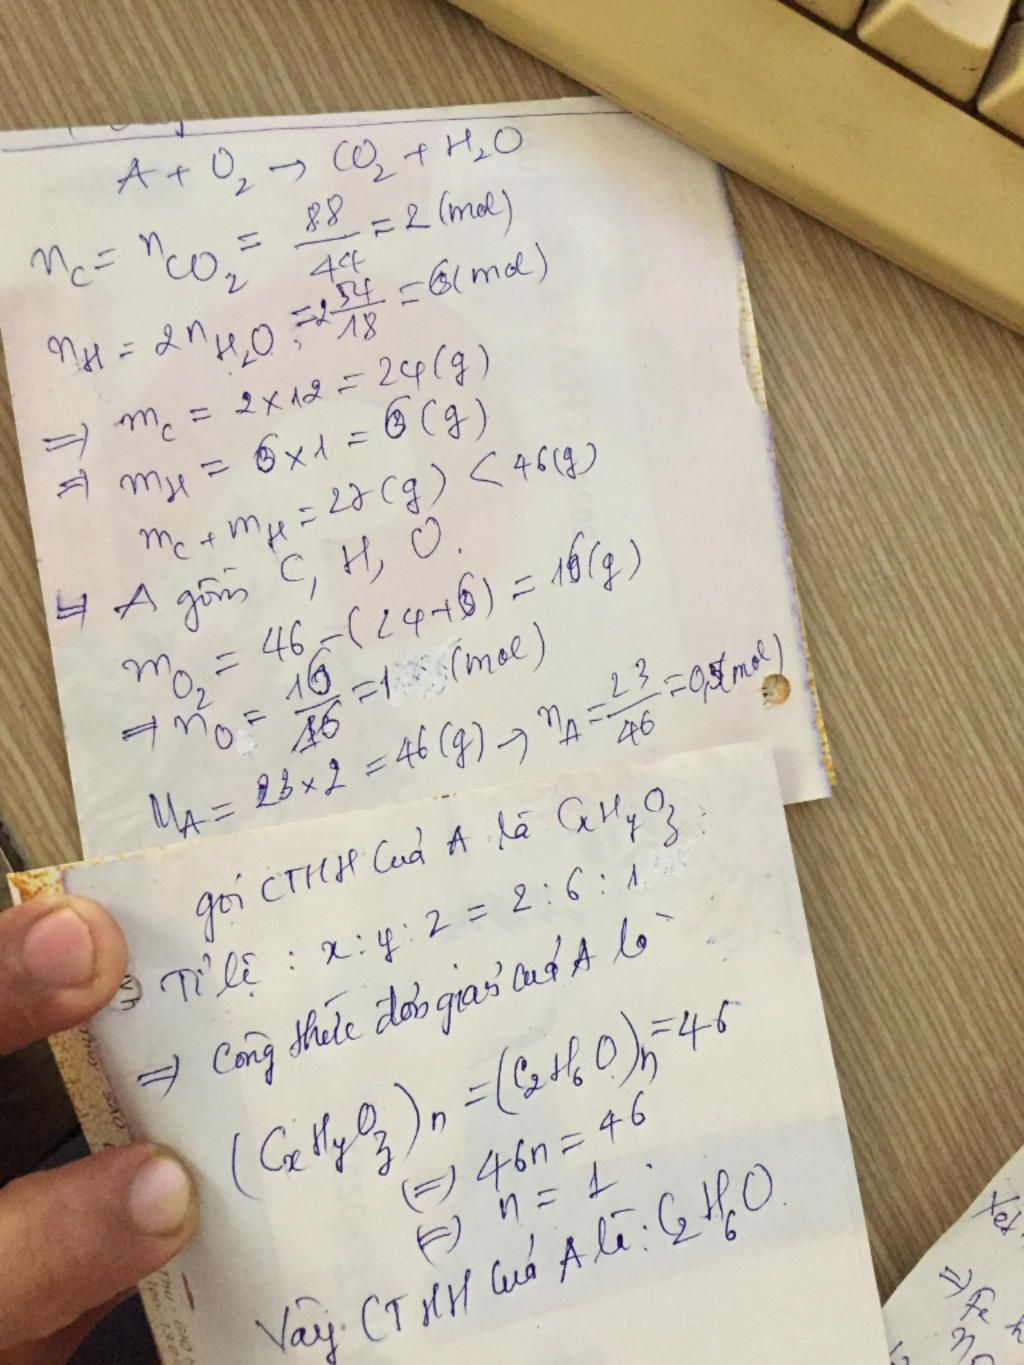 A + O₂ → CO₂ + H₂O
n_C = n_CO₂ = 88/44 = 2 (mol)
n_H = 2n_H₂O = 2 54/18 = 6 (mol)
=> m_C = 2 × 12 = 24 (g)
=> m_H = 6 × 1 = 6 (g)
m_C + m_H = 27 (g) < 46 (g)
=> A gồm C, H, O.
m_O₂ = 46 - (24 + 6) = 16 (g)
=> n_O = 16/16 = 1 (mol)
M_A = 23 × 2 = 46 (g) → n_A = 23/46 = 0,5 (mol)
gọi CTHH của A là CxHyOz :
Tỉ lệ : x : y : z = 2 : 6 : 1
=> công thức đơn giản của A là
(CxHyOz)n = (C₂H₆O)n = 46
(=) 46n = 46
(=) n = 1
Vậy CTHH của A là : C₂H₆O.
Xét
=> Fe
3